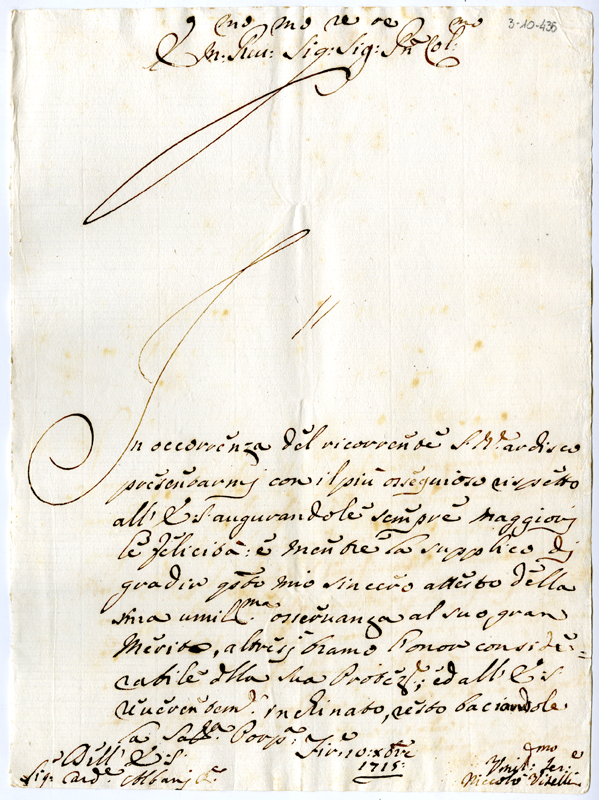 3-10-436
E.mo R.mo Sig.re Sig.re Pn Col.mo
In occorrenza del ricorrente S. N. ardisco
presentarmj con il più osseguioso rispetto
all' E. S. augurandole sempre maggiorj
le felicità: e mentre la supplico dj
gradir q.sto mio sincero attesto della
mia umil.ma osservanza al suo gran
Merito, altresj bramo l'onor conside=
rabile della sua Protez.e; ed all' E. S.
reverentem. inchinato, resto baciandole
la Porp.
Dell' E. S. Firmo xbre
1715:
Sig. Card. Albanj Umil.dmo Ser.e
Niccolò Vitelli